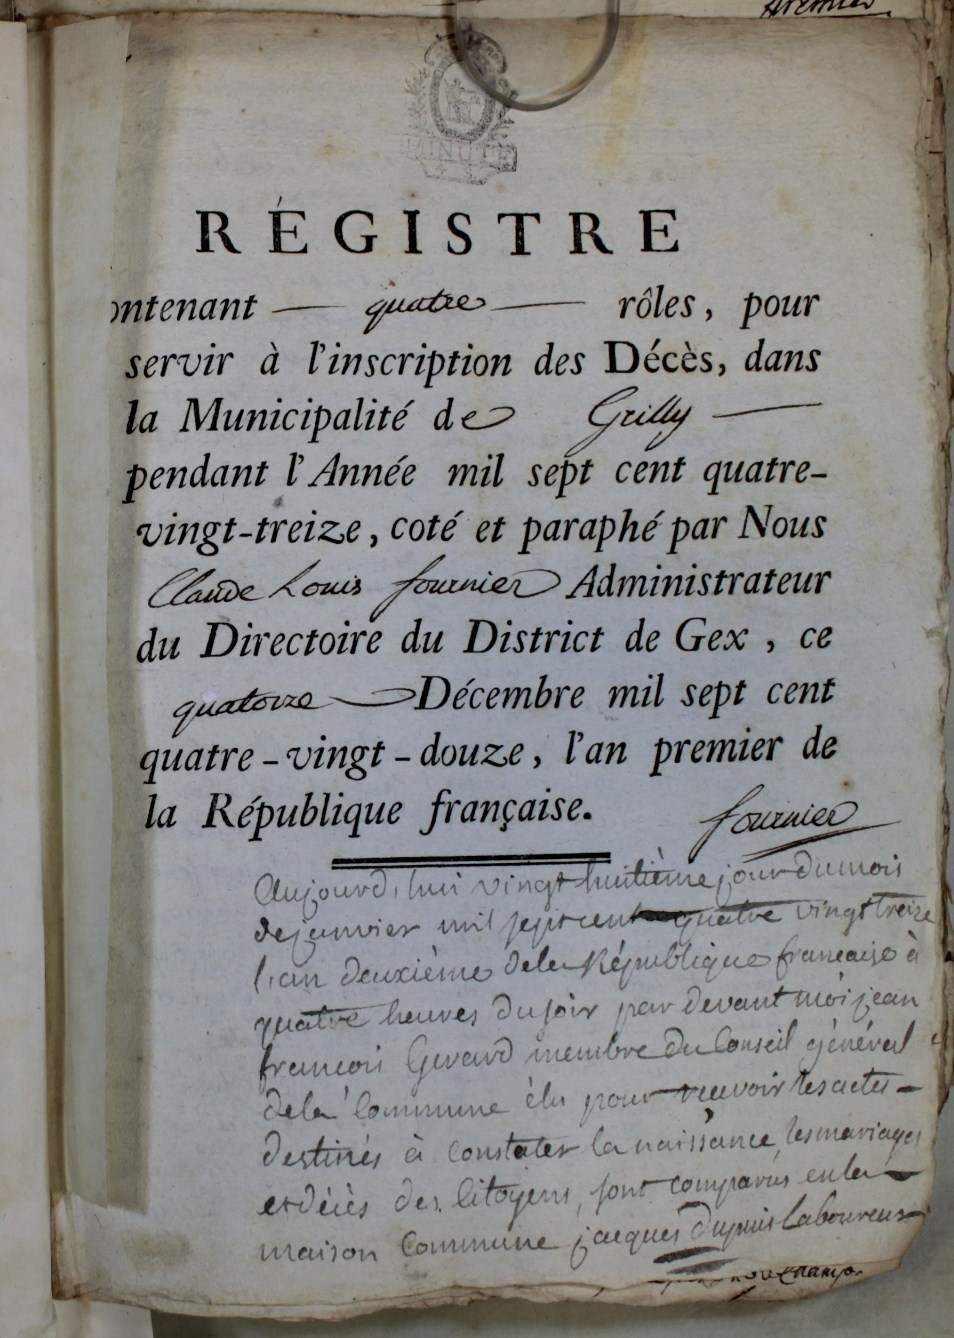 premier
MINUTE
RÉGISTRE
ontenant — quatre — rôles, pour
servir à l'inscription des Décès, dans
la Municipalité de Grilly —
pendant l'Année mil sept cent quatre-
vingt-treize, coté et paraphé par Nous
Claude Louis fournier Administrateur
du Directoire du District de Gex, ce
quatorze — Décembre mil sept cent
quatre-vingt-douze, l'an premier de
la République française.
fournier
Aujourd'hui vingt huitième jour du mois
de janvier mil sept cent quatre vingt treize
l'an deuxième de la République francaise à
quatre heures du soir par devant moi jean
francois Girard membre du Conseil général
de la Commune élu pour recevoir les actes
destinés à constater la naissance, les mariages
et décès des Citoyens, sont comparus en la
maison Commune jacques Dupuis Laboureur